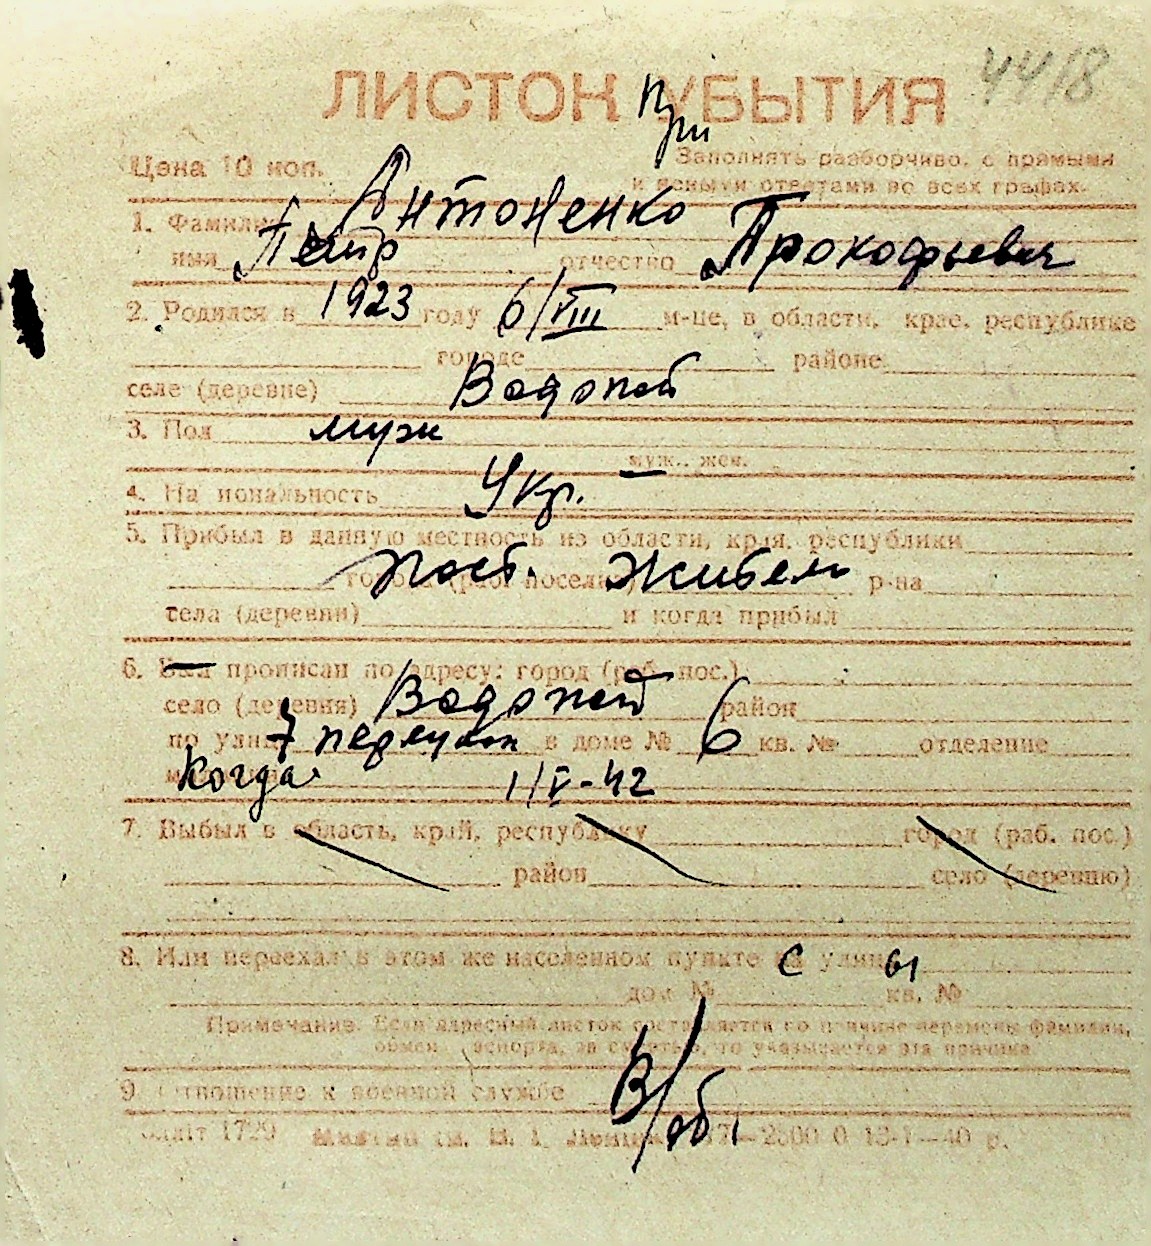 4418
ЛИСТОК УБЫТИЯ
При
Цена 10 коп.
Заполнять разборчиво, с прямыми
и ясными ответами во всех графах.
1. Фамилия Антоненко
имя Петр отчество Прокофьевич
2. Родился в 1923 году 6/VIII м-це, в области, крае, республике
городе районе
селе (деревне) Водопой
3. Пол муж
муж., жен.
4. Национальность Укр.
5. Прибыл в данную местность из области, края, республики
города (раб. поселка) р-на
Пост. житель
села (деревни) и когда прибыл
6. Был прописан по адресу: город (раб. пос.)
село (деревня) Водопой район
по улице 7 переулок в доме № 6 кв. № отделение
Когда 1/V-42
7. Выбыл в область, край, республику город (раб. пос.)
район село (деревню)
8. Или переехал в этом же населенном пункте на улицу
с ы
дом № кв. №
Примечание. Если адресный листок составляется по причине перемены фамилии,
обмена паспорта, за смертью, то указывается эта причина
9. Отношение к военной службе В/об.
1729 0 13-1—40 р.